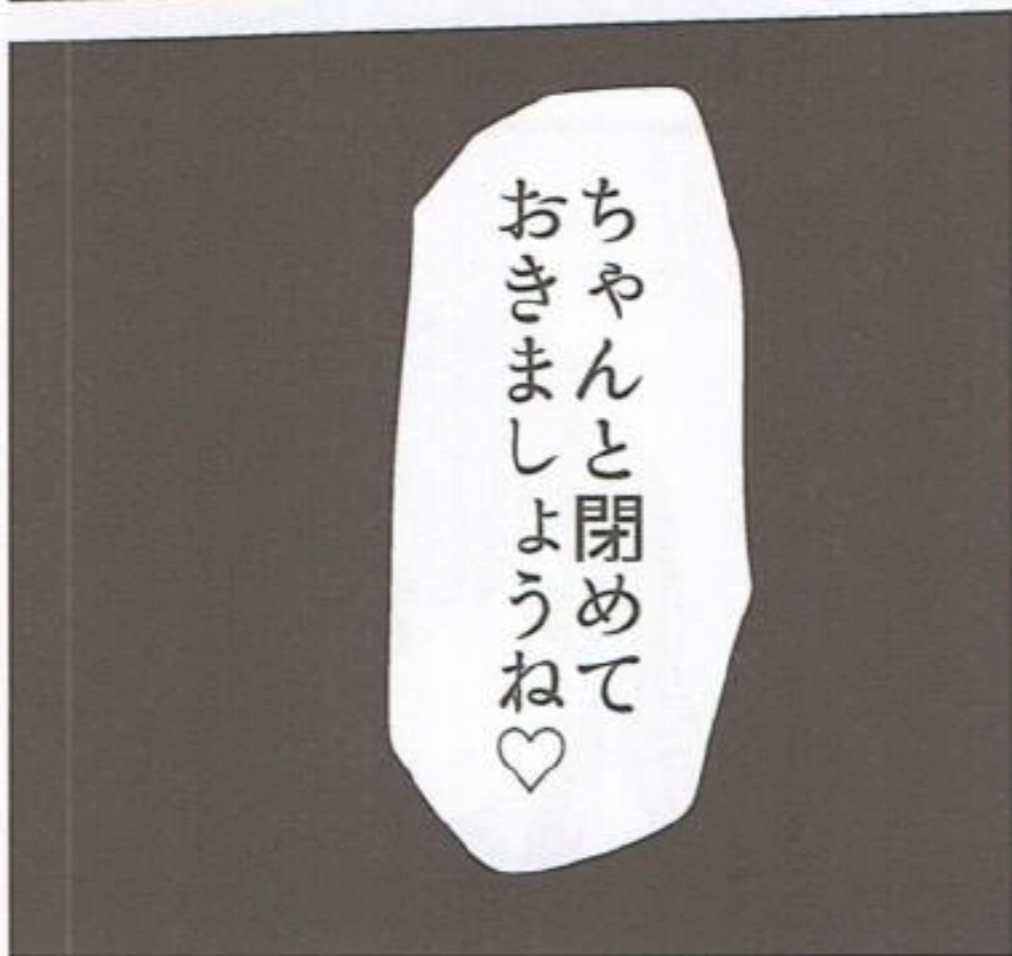 ちゃんと閉めて
おきましょうね♡